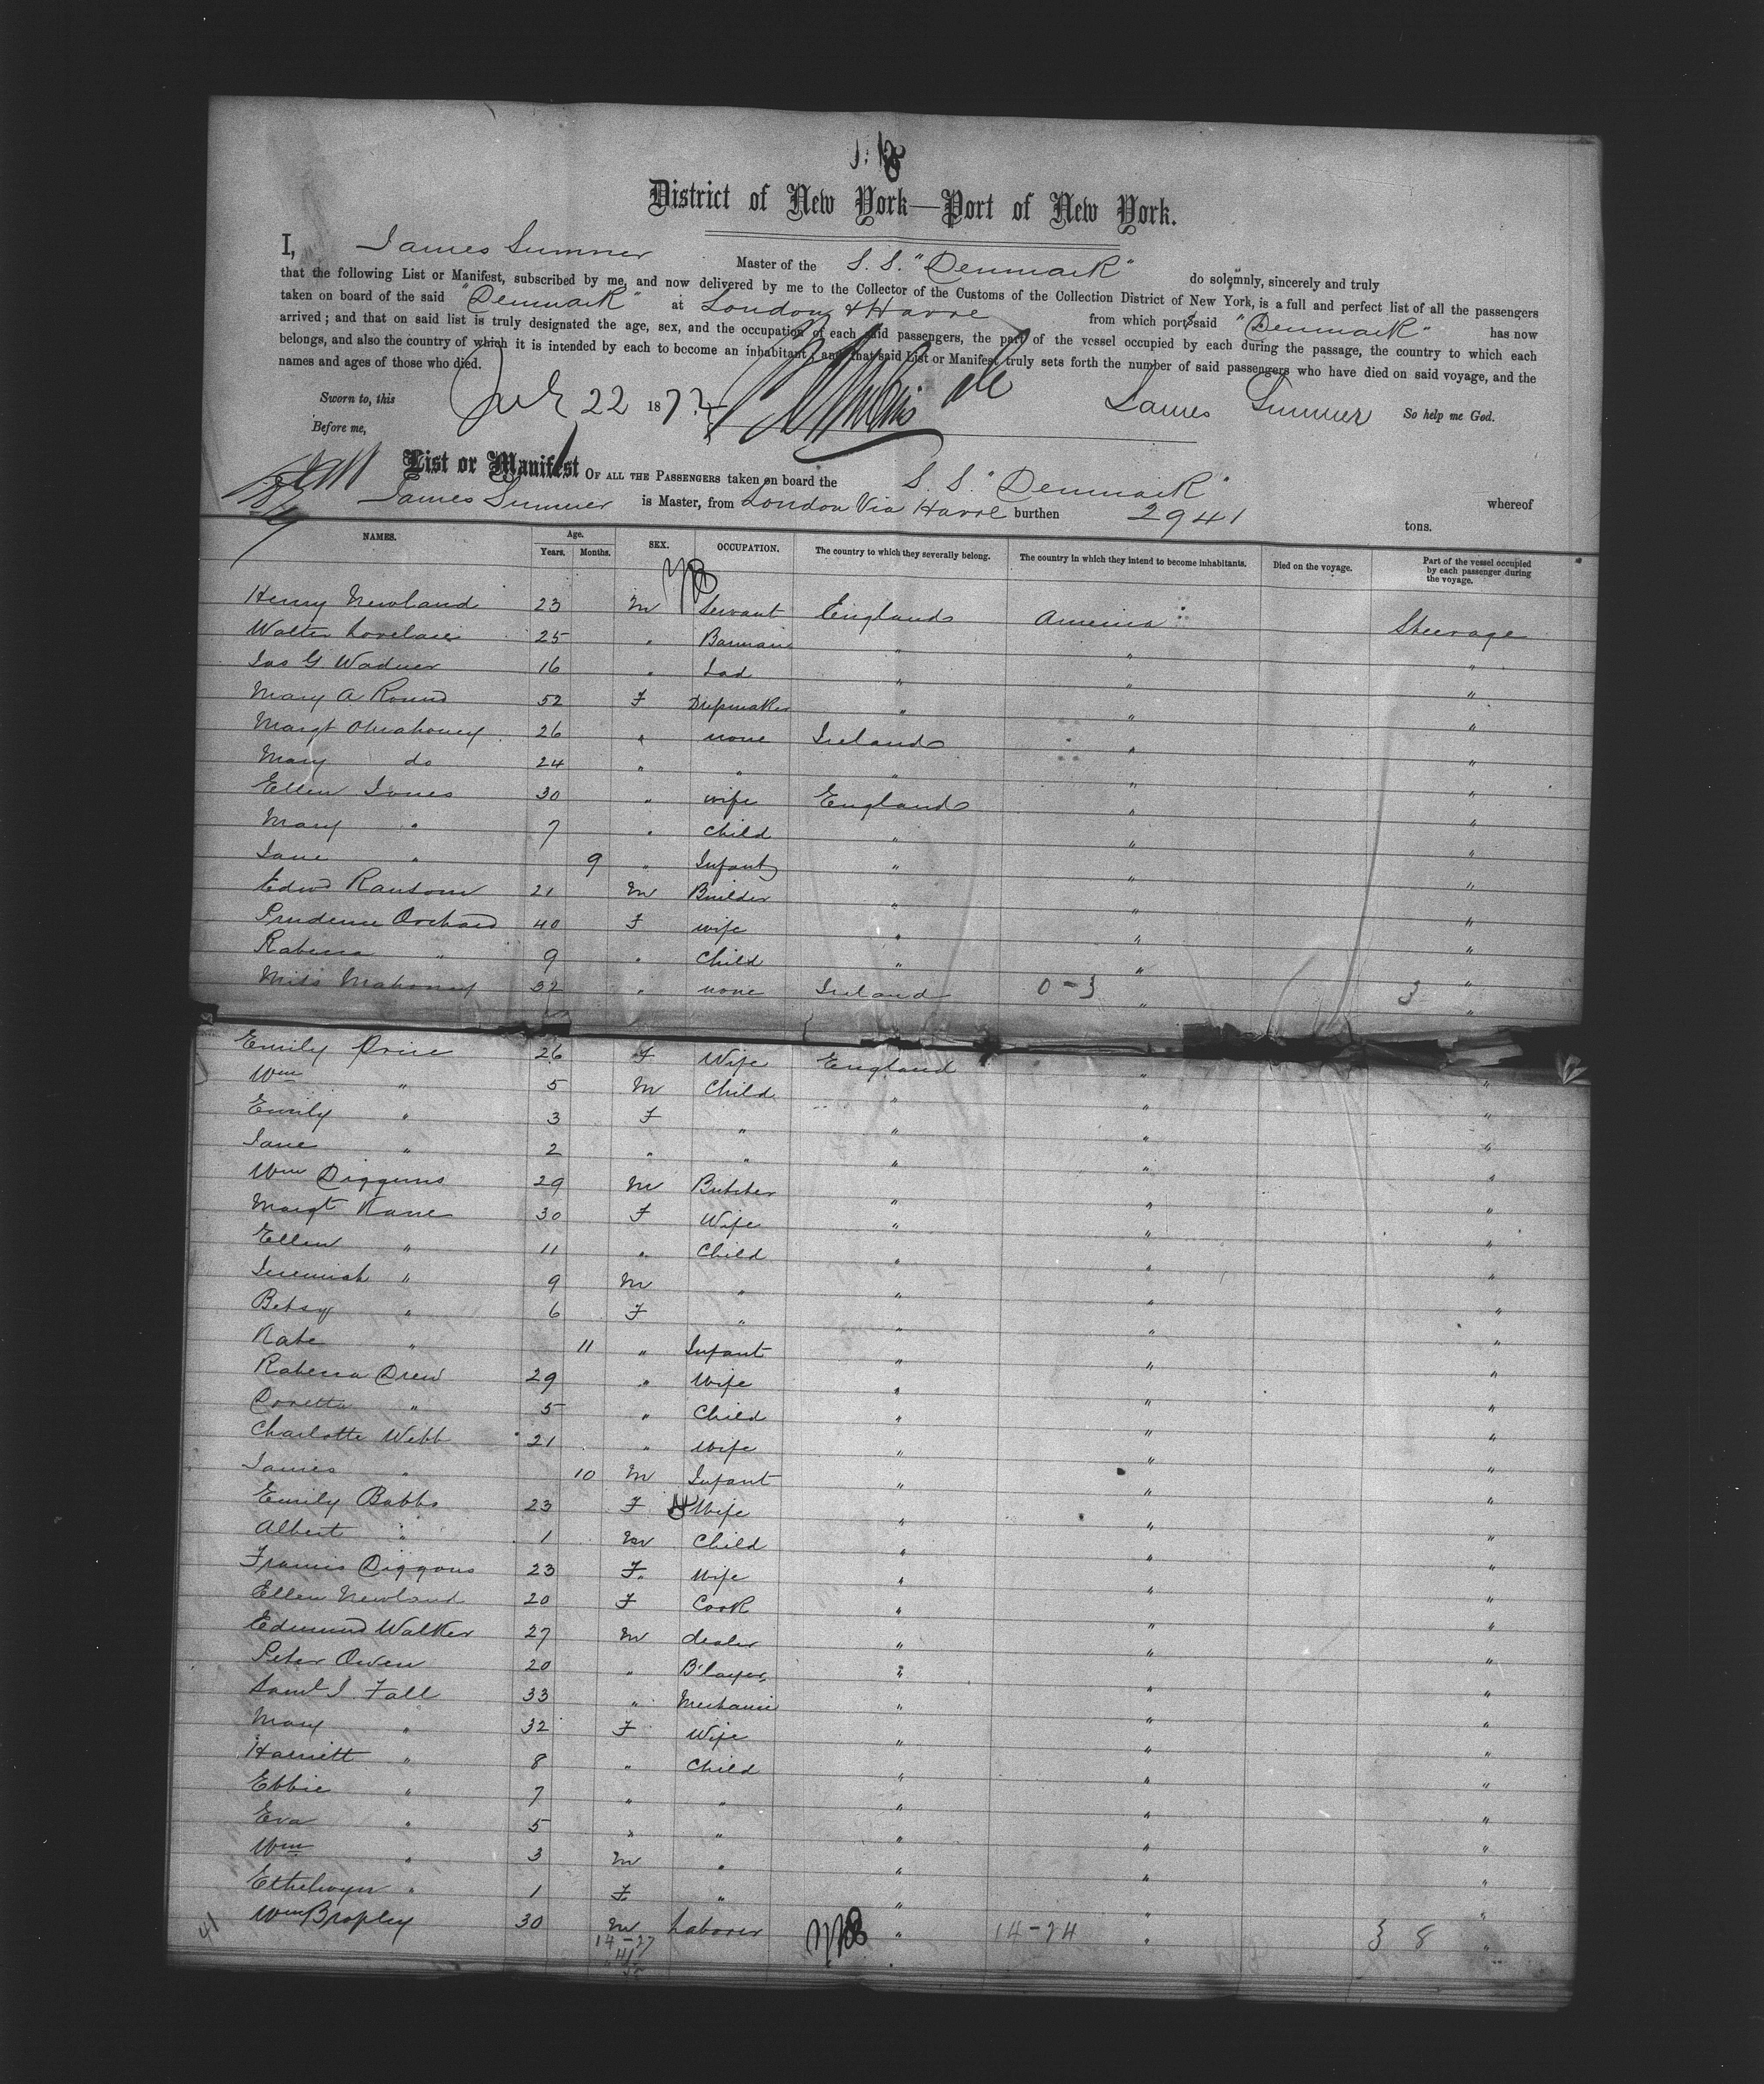 District of New York—Port of New York.
I, James Sumner Master of the S. S. "Denmark" do solemnly, sincerely and truly
that the following List or Manifest, subscribed by me, and now delivered by me to the Collector of the Customs of the Collection District of New York, is a full and perfect list of all the passengers
taken on board of the said "Denmark" at London & Havre from which ports said "Denmark" has now
arrived; and that on said list is truly designated the age, sex, and the occupation of each said passengers, the part of the vessel occupied by each during the passage, the country to which each
belongs, and also the country of which it is intended by each to become an inhabitant; and that said List or Manifest truly sets forth the number of said passengers who have died on said voyage, and the
names and ages of those who died.
Sworn to, this July 22 187 James Sumner So help me God.
Before me,
List or Manifest OF ALL THE PASSENGERS taken on board the S. S. "Denmark" whereof
James Sumner is Master, from London Via Havre burthen 2941 tons.
NAMES. Age. Years. Months. SEX. OCCUPATION. The country to which they severally belong. The country in which they intend to become inhabitants. Died on the voyage. Part of the vessel occupied by each passenger during the voyage.
Henry Newland 23 M Servant England America Steerage
Walter Lovelace 25 " Barman " " "
Jas G. Wadner 16 " Lad " " "
Mary A Round 52 F Dressmaker " " "
Margt OMahoney 26 " none Ireland " "
Mary do 24 " " " " "
Ellen Jones 30 " wife England " "
Mary " 7 " Child " " "
Jane " 9 " Infant " " "
Edwd Ransom 21 M Builder " " "
Prudence Orchard 40 F wife " " "
Rabecca " 9 " Child " " "
Miss Mahoney 32 " none Ireland 0-3 " 3 "
Emily Price 26 F Wife England " "
Wm " 5 M Child " " "
Emily " 3 F " " " "
Jane " 2 " " " " "
Wm Diggins 29 M Butcher " " "
Margt Kane 30 F Wife " " "
Ellen " 11 " Child " " "
Jeremiah " 9 M " " " "
Betsy " 6 F " " " "
Kate " 11 " Infant " " "
Rabecca Drew 29 " Wife " " "
" 5 " Child " " "
Charlotte Webb 21 " Wife " " "
James " 10 M Infant " " "
Emily Babbs 23 F Wife " " "
Albert " 1 M Child " " "
Francis Diggons 23 F. Wife " " "
Ellen Newland 20 F Cook " " "
Edmund Walker 27 M dealer " " "
Peter Owen 20 " B'layer " " "
Saml J. Fall 33 " Mechanic " " "
Mary " 32 F Wife " " "
Harriett " 8 " Child " " "
Ebbie " 7 " " " " "
Eva " 5 " " " " "
Wm " 3 M " " " "
Ethelwyn " 1 F " " " "
41 Wm Bropley 30 M Laborer " 14-24 " } 8 "
14-27
41